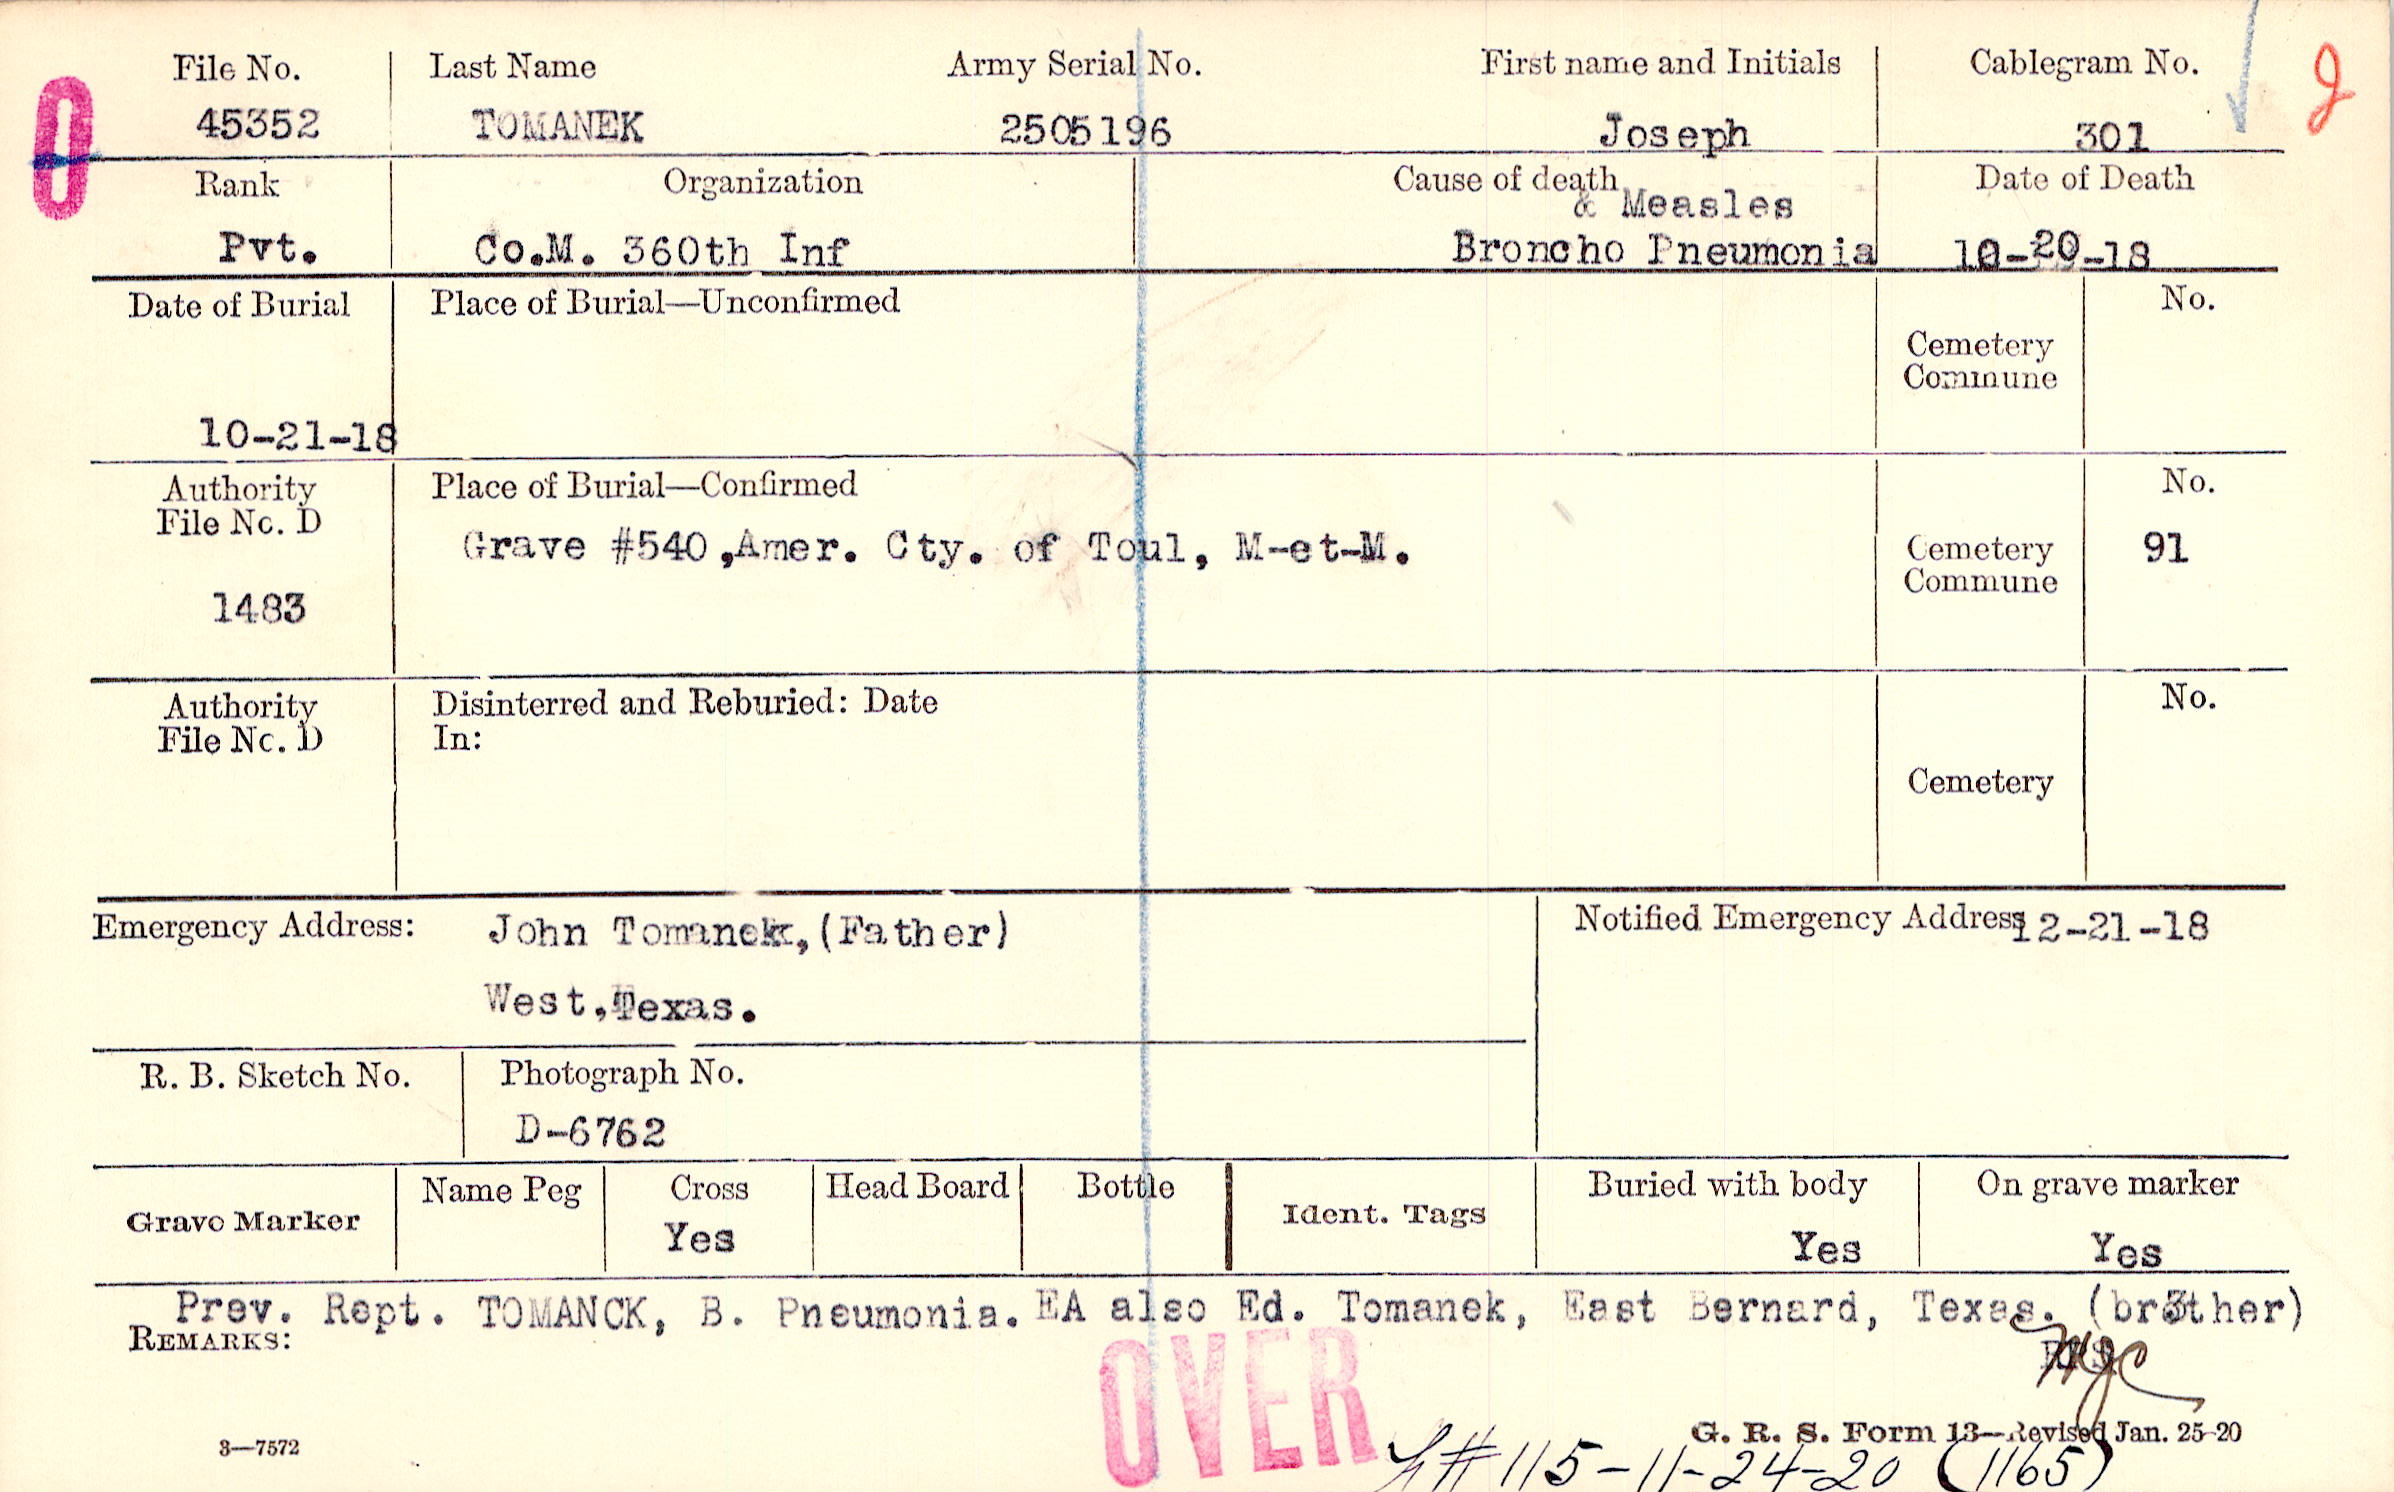 File No. Last Name Army Serial No. First name and Initials Cablegram No.
45352 TOMANEK 2505196 Joseph 301
Rank Organization Cause of death Date of Death
& Measles
Pvt. Co.M. 360th Inf Broncho Pneumonia 10-20-18
Date of Burial Place of Burial—Unconfirmed No.
Cemetery
Commune
10-21-18
Authority Place of Burial—Confirmed No.
File No. D
Grave #540,Amer. Cty. of Toul, M-et-M. Cemetery 91
Commune
1483
Authority Disinterred and Reburied: Date No.
File No. D In:
Cemetery
Emergency Address: John Tomanek,(Father) Notified Emergency Address 12-21-18
West,Texas.
R. B. Sketch No. Photograph No.
D-6762
Grave Marker Name Peg Cross Head Board Bottle Ident. Tags Buried with body On grave marker
Yes Yes Yes
Prev. Rept. TOMANCK, B. Pneumonia. EA also Ed. Tomanek, East Bernard, Texas. (brother)
REMARKS:
OVER
3—7572 G. R. S. Form 13—Revised Jan. 25-20
#115-11-24-20 (1165)